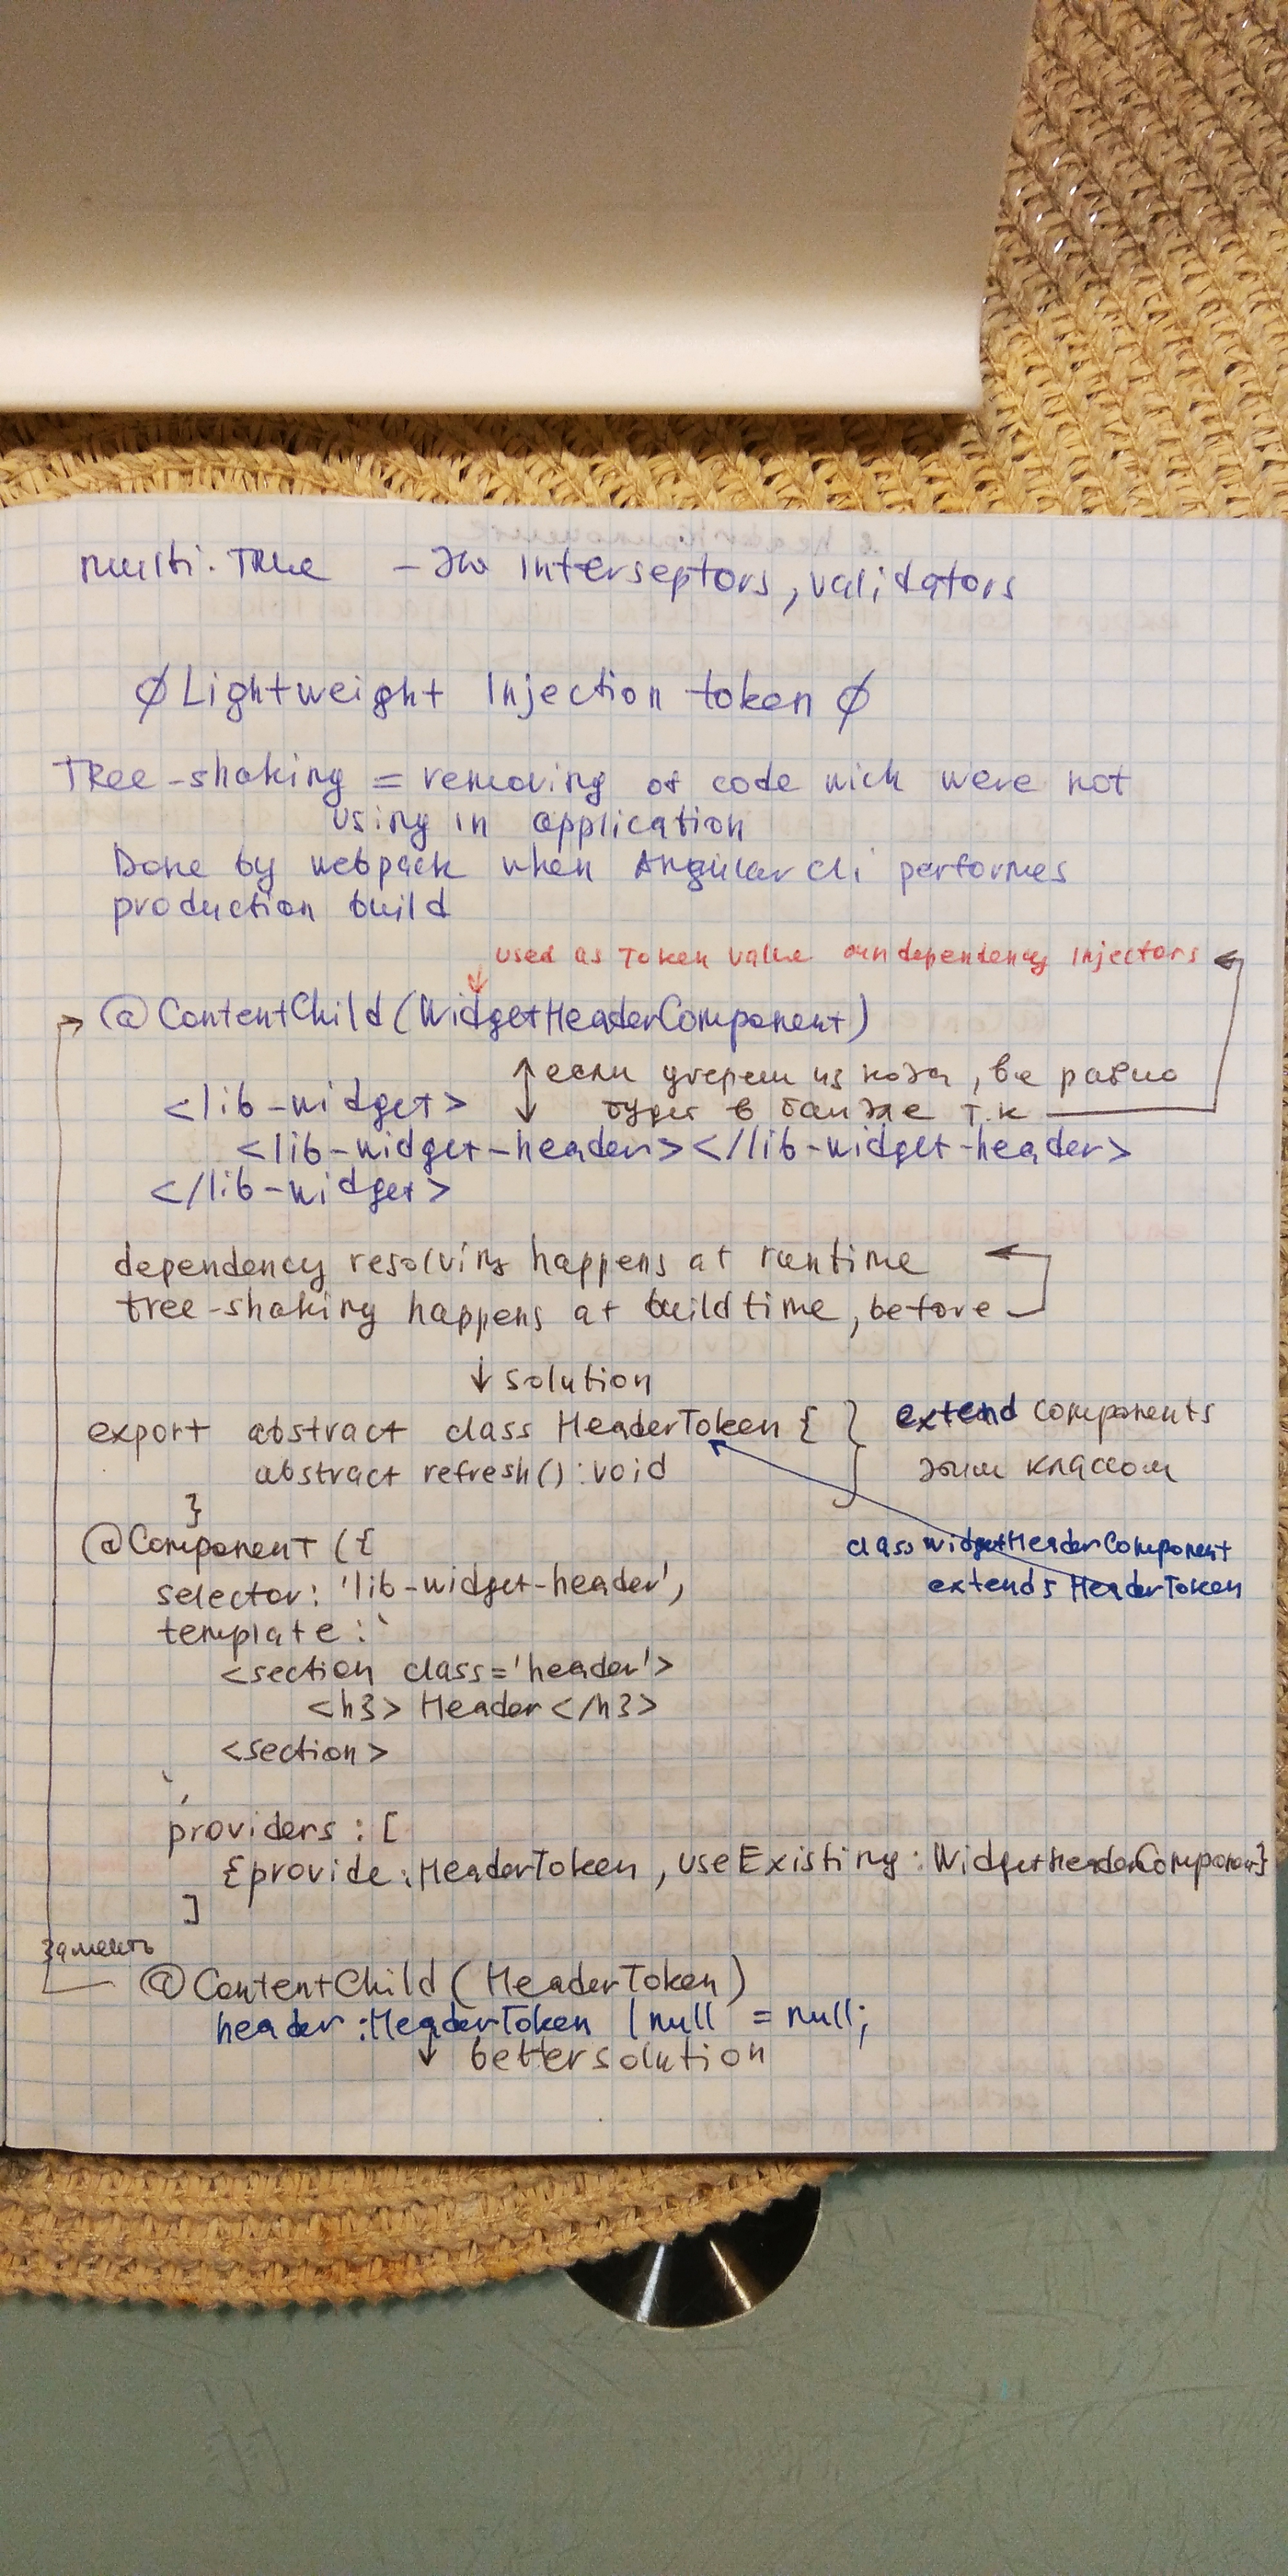 multi: TRue – это Interseptors, validators
∅ Lightweight Injection token ∅
TRee-shaking = removing of code wich were not
using in application
Done by webpack when Angular cli performes
production build
used as Token value для dependency Injectors
@ContentChild(WidgetHeaderComponent)
если уберем из кода, все равно
<lib-widget>
будет в бандле т.к
<lib-widget-header></lib-widget-header>
</lib-widget>
dependency resolving happens at runtime
tree-shaking happens at build time, before
↓ solution
export abstract class HeaderToken {
abstract refresh(): void
}
extend components
этим классом
class widgetHeaderComponent
extends HeaderToken
@Component ({
selector: 'lib-widget-header',
template: `
<section class='header'>
<h3> Header </h3>
<section>
`,
providers: [
{provide: HeaderToken, useExisting: WidgetHeaderComponent}
]
заменить
@ContentChild (HeaderToken)
header: HeaderToken | null = null;
↓ better solution